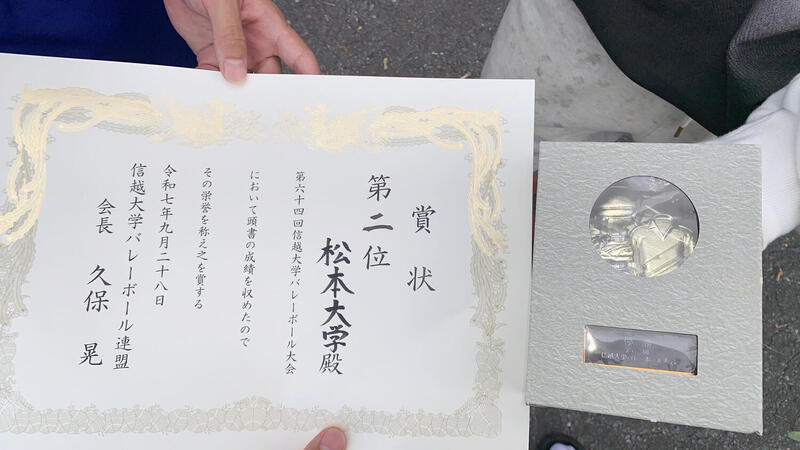 賞状
第二位
松本大学殿
第六十四回信越大学バレーボール大会
において頭書の成績を収めたので
その栄誉を称え之を賞する
令和七年九月二十八日
信越大学バレーボール連盟
会長 久保 晃